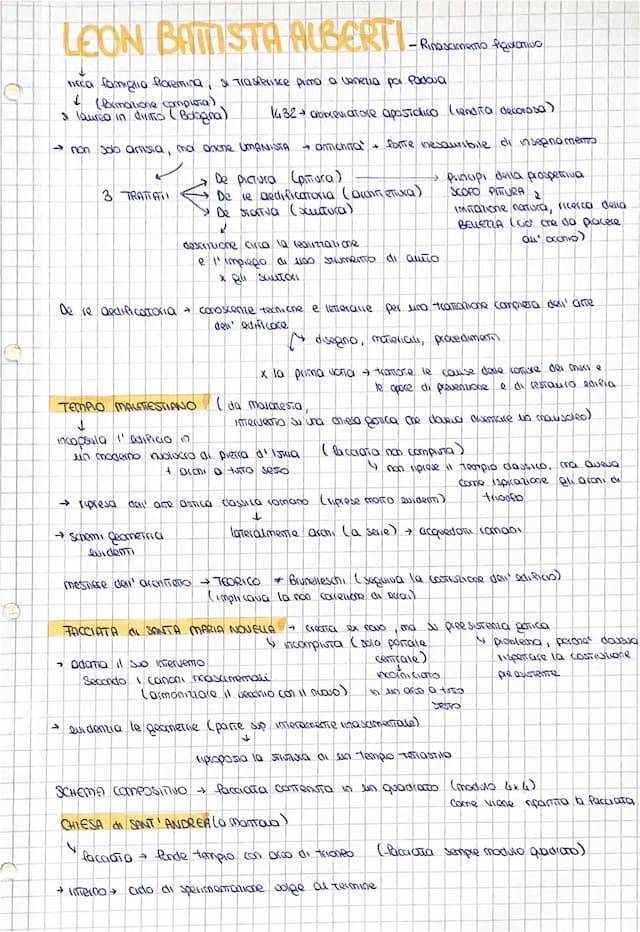 LEON BATTISTA ALBERTI - Rinascimento figurativo
ricca famiglia fiorentina, si trasferisce prima a Venezia poi Padova
(formazione completa)
si laurea in diritto (Bologna) 1432 → abbreviatore apostolico (rendita decorosa)
→ non solo artista, ma anche UMANISTA → antichità = fonte inesauribile di insegnamento
3 TRATTATI → De pictura (pittura) → principi della prospettiva
→ De re aedificatoria (architettura) SCOPO PITTURA
→ De statua (scultura) imitazione natura, ricerca della
BELLEZZA (ciò che dà piacere
all'occhio)
descrizione circa la realizzazione
e l'impiego di uno strumento di aiuto
x gli scultori
De re aedificatoria → conoscenze tecniche e letterarie per una trattazione completa dell'arte
dell'edificare
↳ disegno, materiali, procedimenti
x la prima volta → trattare le cause delle rotture dei muri e
le opere di prevenzione e di restauro edilizia
TEMPIO MALATESTIANO (da Malatesta,
intervento su una chiesa gotica che doveva diventare un mausoleo)
incapsula l'edificio in
un moderno involucro di pietra d'Istria (facciata non compiuta)
+ archi a tutto sesto ↳ non riprese il Tempio classico, ma aveva
come ispirazione gli archi di
trionfo
→ ripresa dell'arte antica classica romano (riprese molto evidenti)
→ schemi geometrici lateralmente archi (a serie) → acquedotti romani
evidenti
mestiere dell'architetto → TEORICO ≠ Brunelleschi (seguiva la costruzione dell'edificio)
(implicava la non correzione di errori)
FACCIATA di SANTA MARIA NOVELLA → creata ex novo, ma su preesistenza gotica
↳ incompiuta (solo portale ↳ problema, perché doveva
→ adatta il suo intervento centrale) rispettare la costruzione
secondo i canoni rinascimentali incorniciato preesistente
(armonizzare il vecchio con il nuovo) in un arco a tutto
sesto
→ evidenzia le geometrie (parte sup interamente rinascimentale)
riproposta la struttura di un tempio tetrastilo
SCHEMA COMPOSITIVO → facciata contenuta in un quadrato (modulo 4x4)
come viene ripartita la facciata
CHIESA di SANT'ANDREA (a Mantova)
↳ facciata → fonde tempio con arco di trionfo (facciata sempre modulo quadrato)
→ interno → ciclo di sperimentazione volge al termine